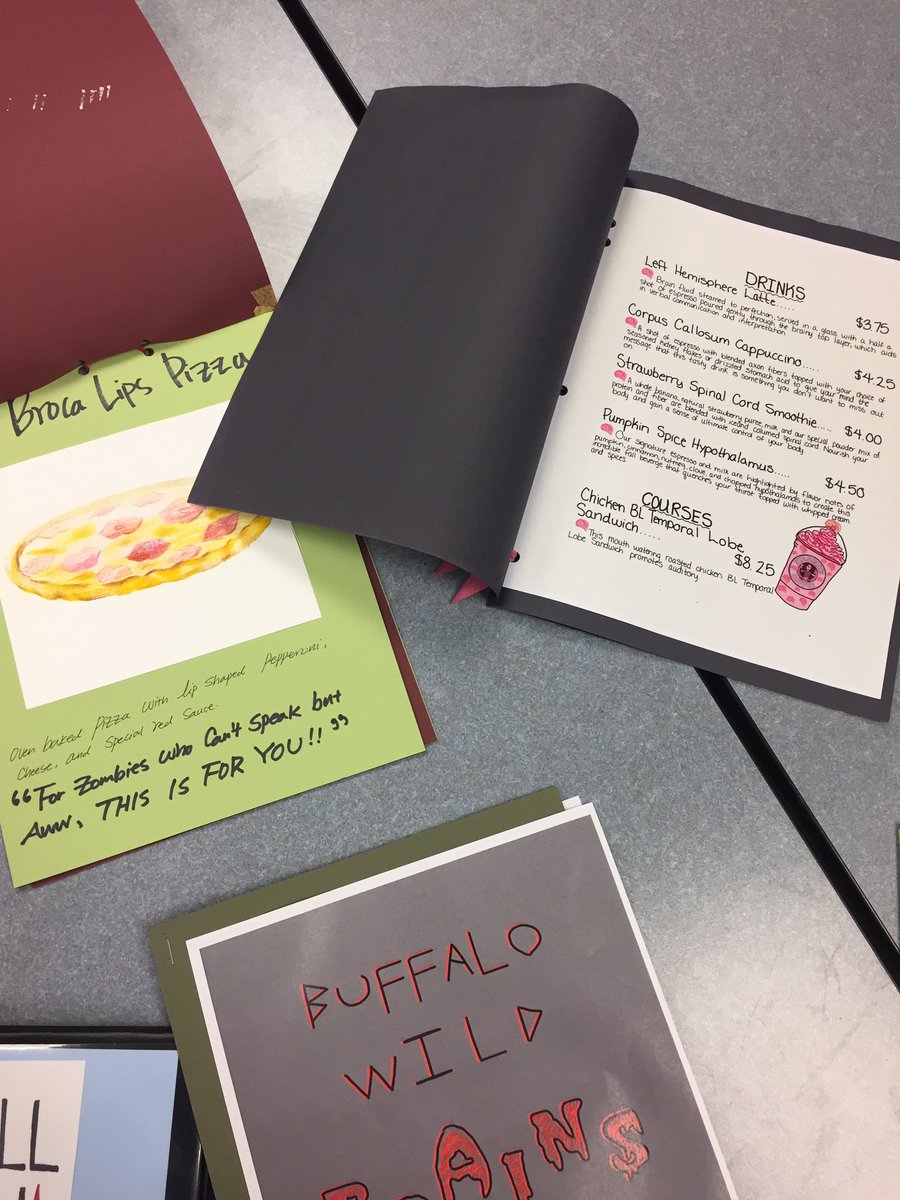 Broca Lips Pizza
Oven baked Pizza with lip shaped Pepperoni,
Cheese, and special red sauce.
"For Zombies who Can't speak but
Aww, THIS IS FOR YOU!!"
DRINKS
Left Hemisphere Latte..... $3.75
Brain fluid steamed to perfection, served in a glass with a half a
shot of espresso poured gently through the brainy top layer, which aids
in verbal communication and interpretation
Corpus Callosum Cappuccino..... $4.25
A shot of espresso with blended axon fibers topped with your choice of
seasoned kidney flakes or drizzled stomach acid to give your mind the
message that this tasty drink is something you don't want to miss out
on.
Strawberry Spinal Cord Smoothie..... $4.00
A whole banana, natural strawberry puree, milk and our special powder mix of
protein and fiber are blended with ice and columed spinal cord. Nourish your
body and gain a sense of ultimate control of your body
Pumpkin Spice Hypothalamus..... $4.50
Our signature espresso and milk are highlighted by flavor notes of
pumpkin, cinnamon, nutmeg, clove, and chopped hypothalamus to create this
incredible fall beverge that quenches your thirst topped with whipped cream
and spices
COURSES
Chicken BL Temporal Lobe
Sandwich..... $8.25
This mouth watering roasted chicken BL Temporal
Lobe Sandwich promotes auditory
BUFFALO
WILD
BRAINS
LL